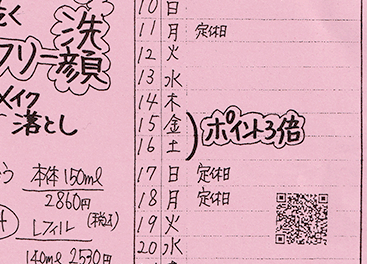 たく
洗
フリー顔
メイク
落とし
本体150ml
2860円
(税込)
レフィル
140ml 2530円
10 日
11 月 定休日
12 火
13 水
14 木
15 金
16 土
ポイント3倍
17 日 定休日
18 月 定休日
19 火
20 水